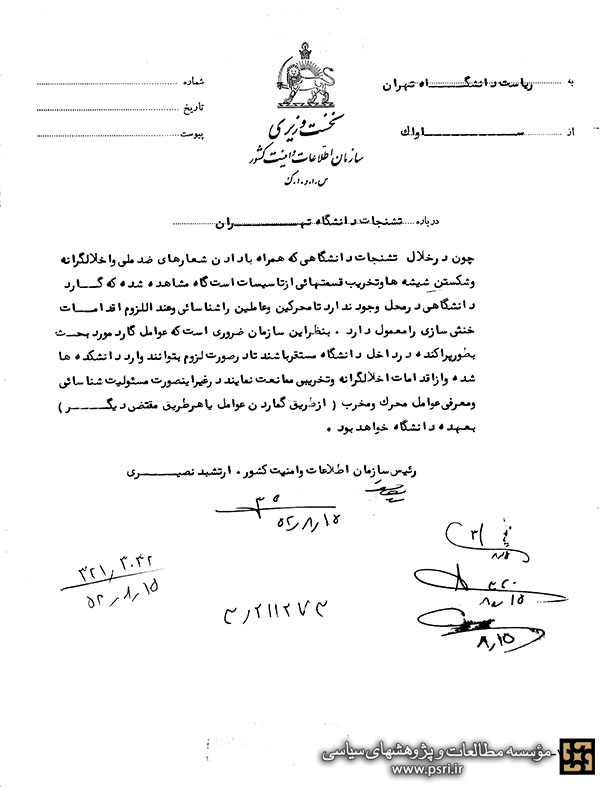 به ریاست دانشگاه تهران
از ساواك
شماره
تاریخ
پیوست
نخست وزیری
سازمان اطلاعات و امنیت کشور
س.ا.و.ا.ک
درباره تشنجات دانشگاه تهران
چون درخلال تشنجات دانشگاهی که همراه بادادن شعارهای ضد ملی واخلالگرانه
وشکستن شیشه هاوتخریب قسمتهائی ازتاسیسات است گاه مشاهده شده که گارد
دانشگاهی درمحل وجود ندارد تامحرکین وعاملین راشناسائی وعند اللزوم اقدامات
خنثی سازی رامعمول دارد . بنظراین سازمان ضروری است که عوامل گارد مورد بحث
بطورپراکنده درداخل دانشگاه مستقرباشند تادرصورت لزوم بتوانند وارد دانشکده ها
شده وازاقدامات اخلالگرانه وتخریبی ممانعت نمایند درغیراینصورت مسئولیت شناسائی
ومعرفی عوامل محرك ومخرب ( ازطریق گماردن عوامل یاهرطریق مقتضی دیگر )
بعهده دانشگاه خواهد بود .
رئیس سازمان اطلاعات وامنیت کشور . ارتشبد نصیری
۵۲٫۸٫۱۵
۳۲۱٫۳۰۴۲
۵۲٫۸٫۱۵
۸٫۱۵
۸٫۱۵
مؤسسه مطالعات و پژوهشهای سیاسی
www.psri.ir